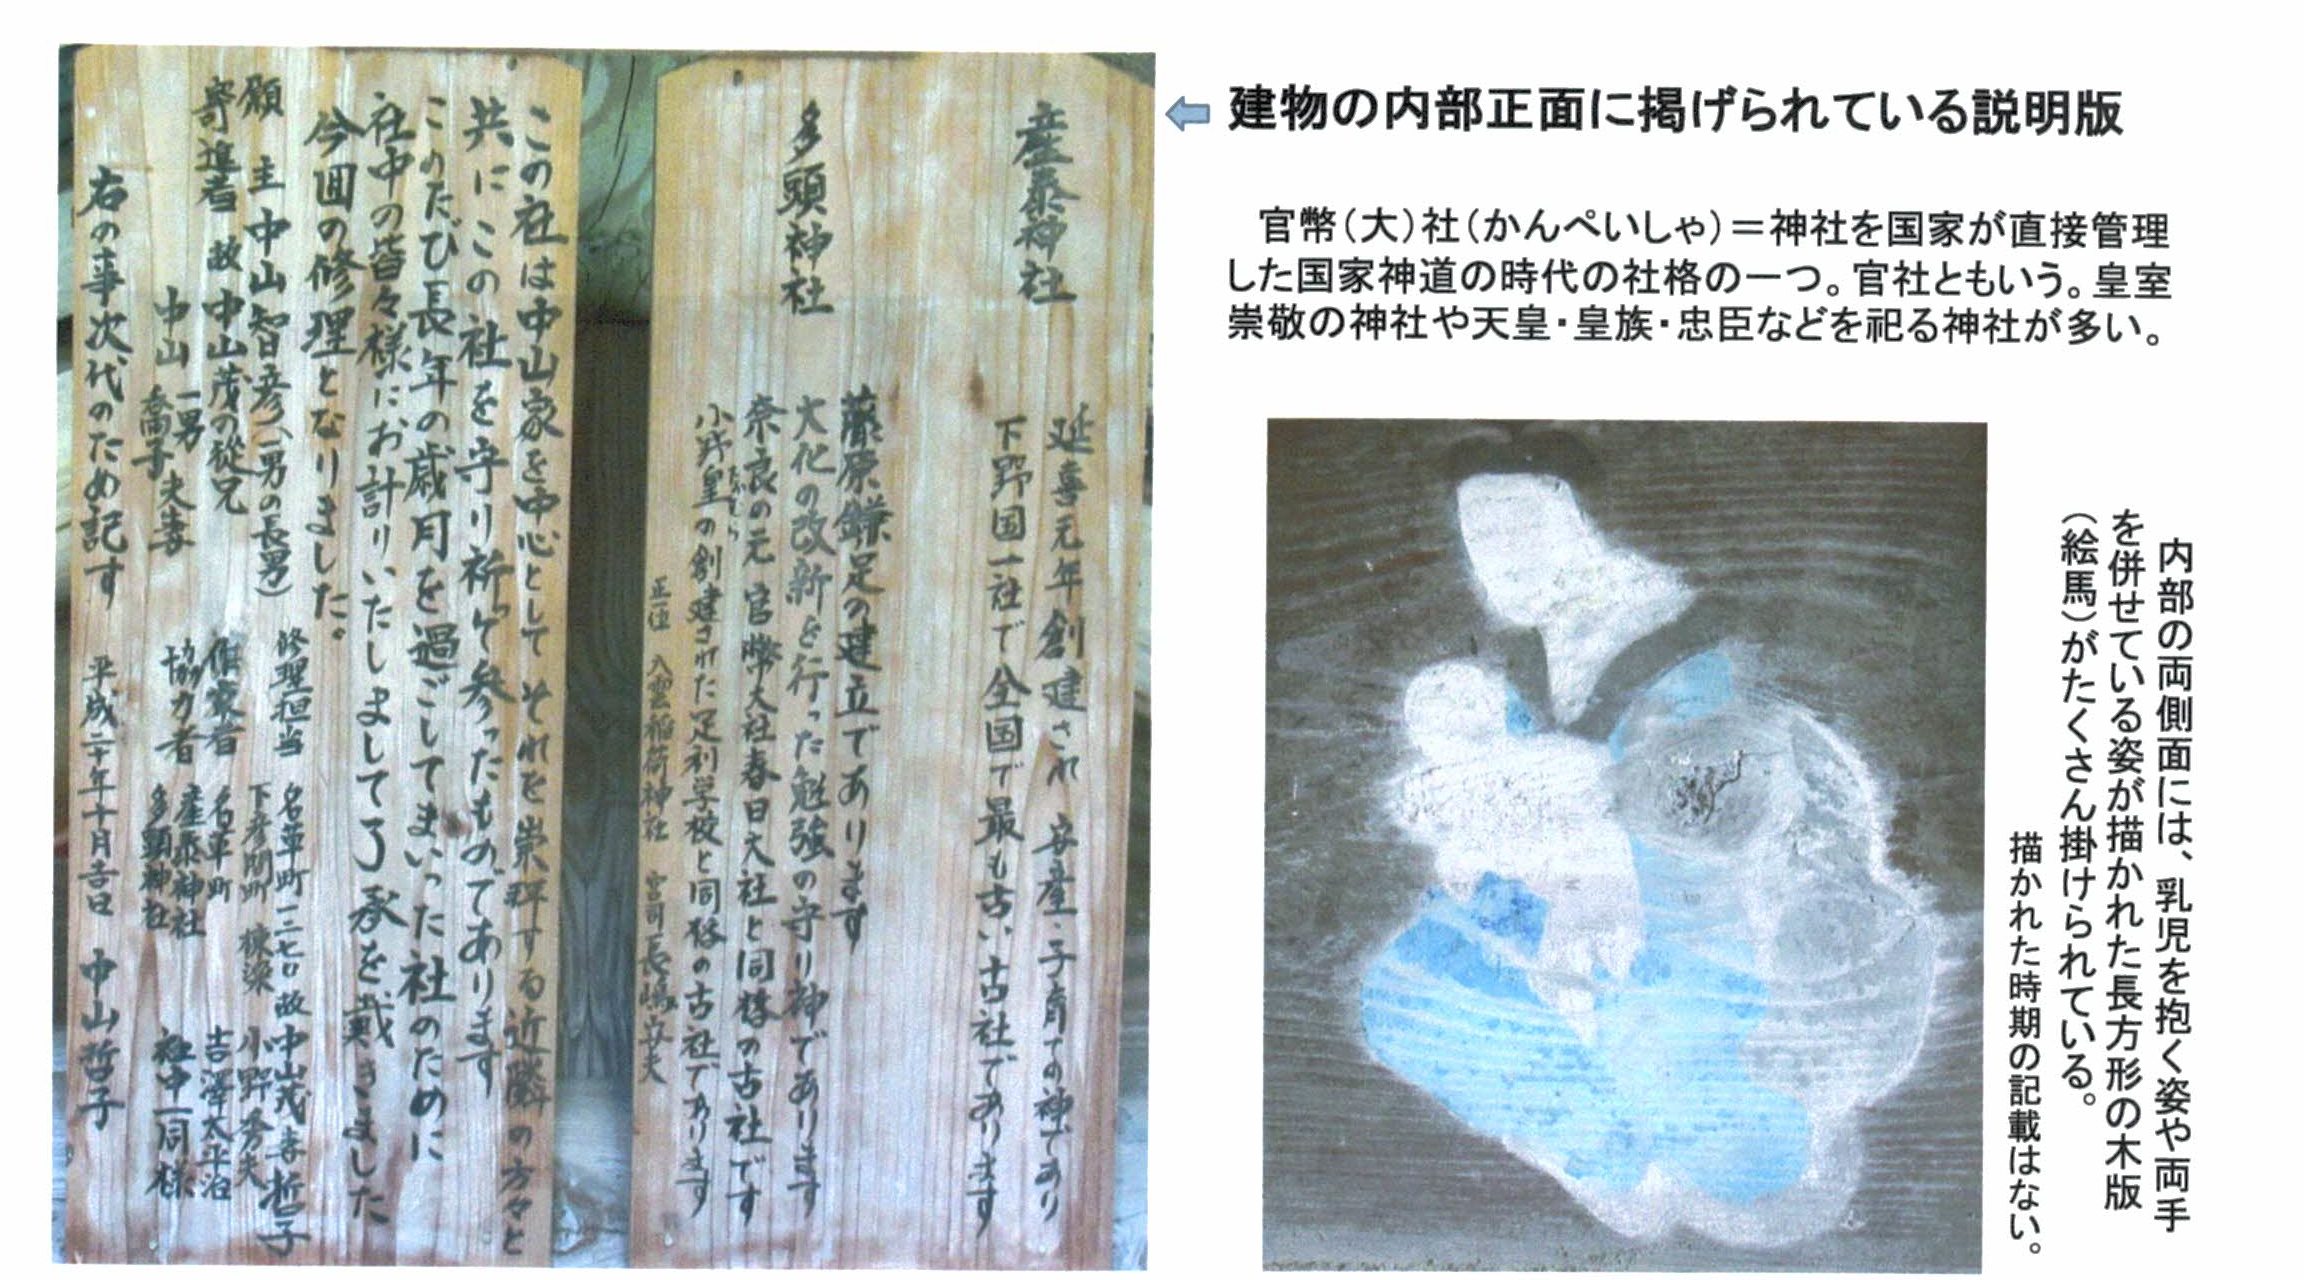 建物の内部正面に掲げられている説明版
官幣(大)社(かんぺいしゃ)=神社を国家が直接管理
した国家神道の時代の社格の一つ。官社ともいう。皇室
崇敬の神社や天皇・皇族・忠臣などを祀る神社が多い。
産泰神社
延喜元年創建され 安産・子育ての神であり
下野国一社で全国で最も古い古社であります
多頭神社
藤原鎌足の建立であります
大化の改新を行った勉強の守り神であります
奈良の元 官幣大社春日大社と同格の古社です
小野篁の創建された足利学校と同格の古社であります
たかむら
正一位 八雲稲荷神社 宮司 長嶋
この社は中山家を中心として それを崇拝する近隣の方々と
共に この社を守り祈って参ったものであります
このたび長年の歳月を過ごしてまいった社のために
社中の皆々様にお計りいたしまして了承を戴きました
今回の修理となりました。
願主 中山智彦(一男の長男)
寄進者 故 中山茂の従兄
中山 一男 喬子 夫妻
修理担当 名草町一二七〇 故中山茂 妻哲子
下彦間町 棟梁 小野秀夫
作業者 名草町 吉澤太平治
協力者 産泰神社 多頭神社 社中一同様
右の事次代のため記す 平成二十年十月吉日 中山哲子
内部の両側面には、乳児を抱く姿や両手
を併せている姿が描かれた長方形の木版
(絵馬)がたくさん掛けられている。
描かれた時期の記載はない。